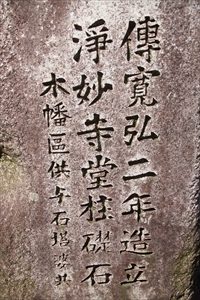 傳寛弘二年造立
淨妙寺堂柱礎石
木幡區供与石塔婆共